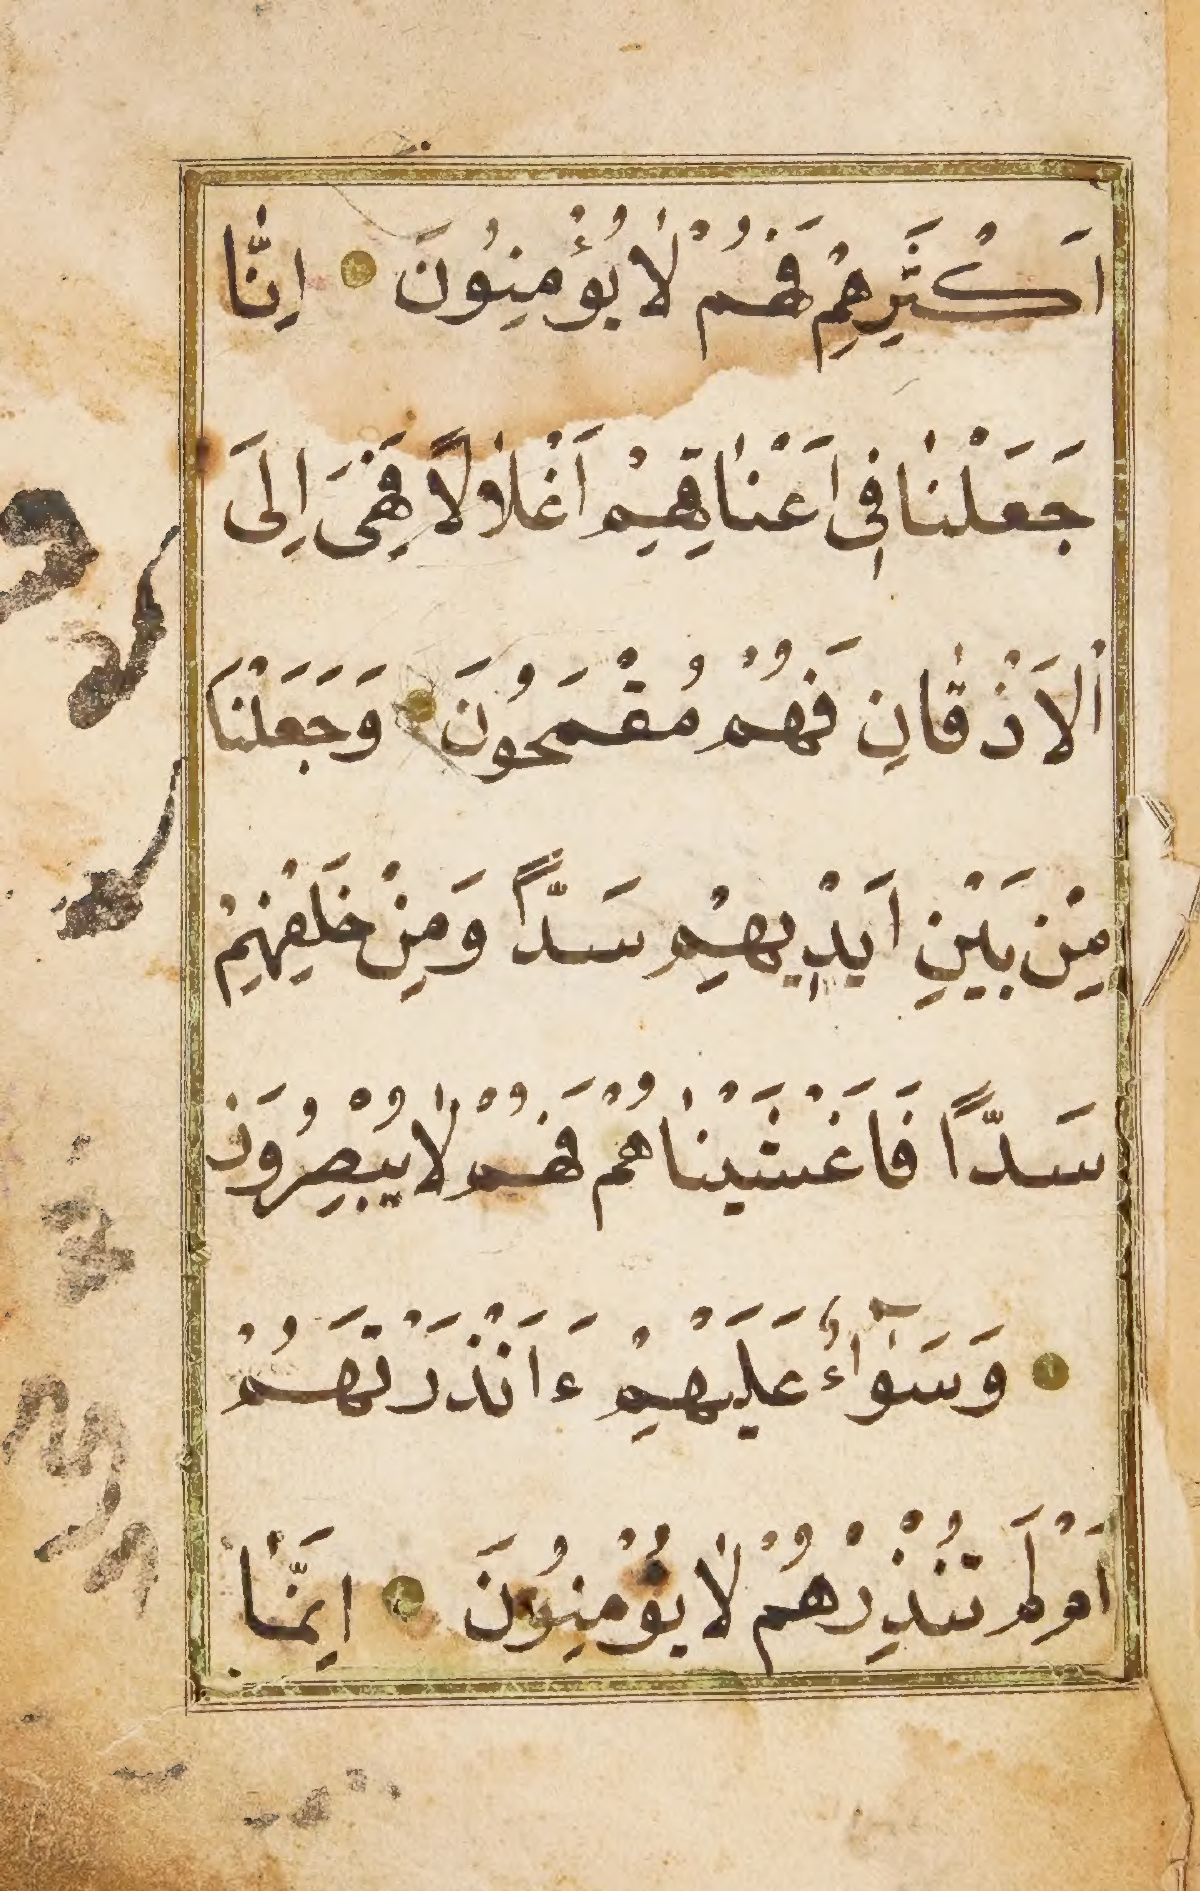 اَكْثَرِهِمْ فَهُمْ لَا يُؤْمِنُونَ اِنَّا
جَعَلْنَا فِى اَعْنَاقِهِمْ اَغْلَالًا فَهِىَ اِلَى
الْاَذْقَانِ فَهُمْ مُقْمَحُونَ وَجَعَلْنَا
مِنْ بَيْنِ اَيْدِيهِمْ سَدًّا وَمِنْ خَلْفِهِمْ
سَدًّا فَاَغْشَيْنَاهُمْ فَهُمْ لَا يُبْصِرُونَ
وَسَوَآءٌ عَلَيْهِمْ ءَاَنْذَرْتَهُمْ
اَمْ لَمْ تُنْذِرْهُمْ لَا يُؤْمِنُونَ اِنَّمَا